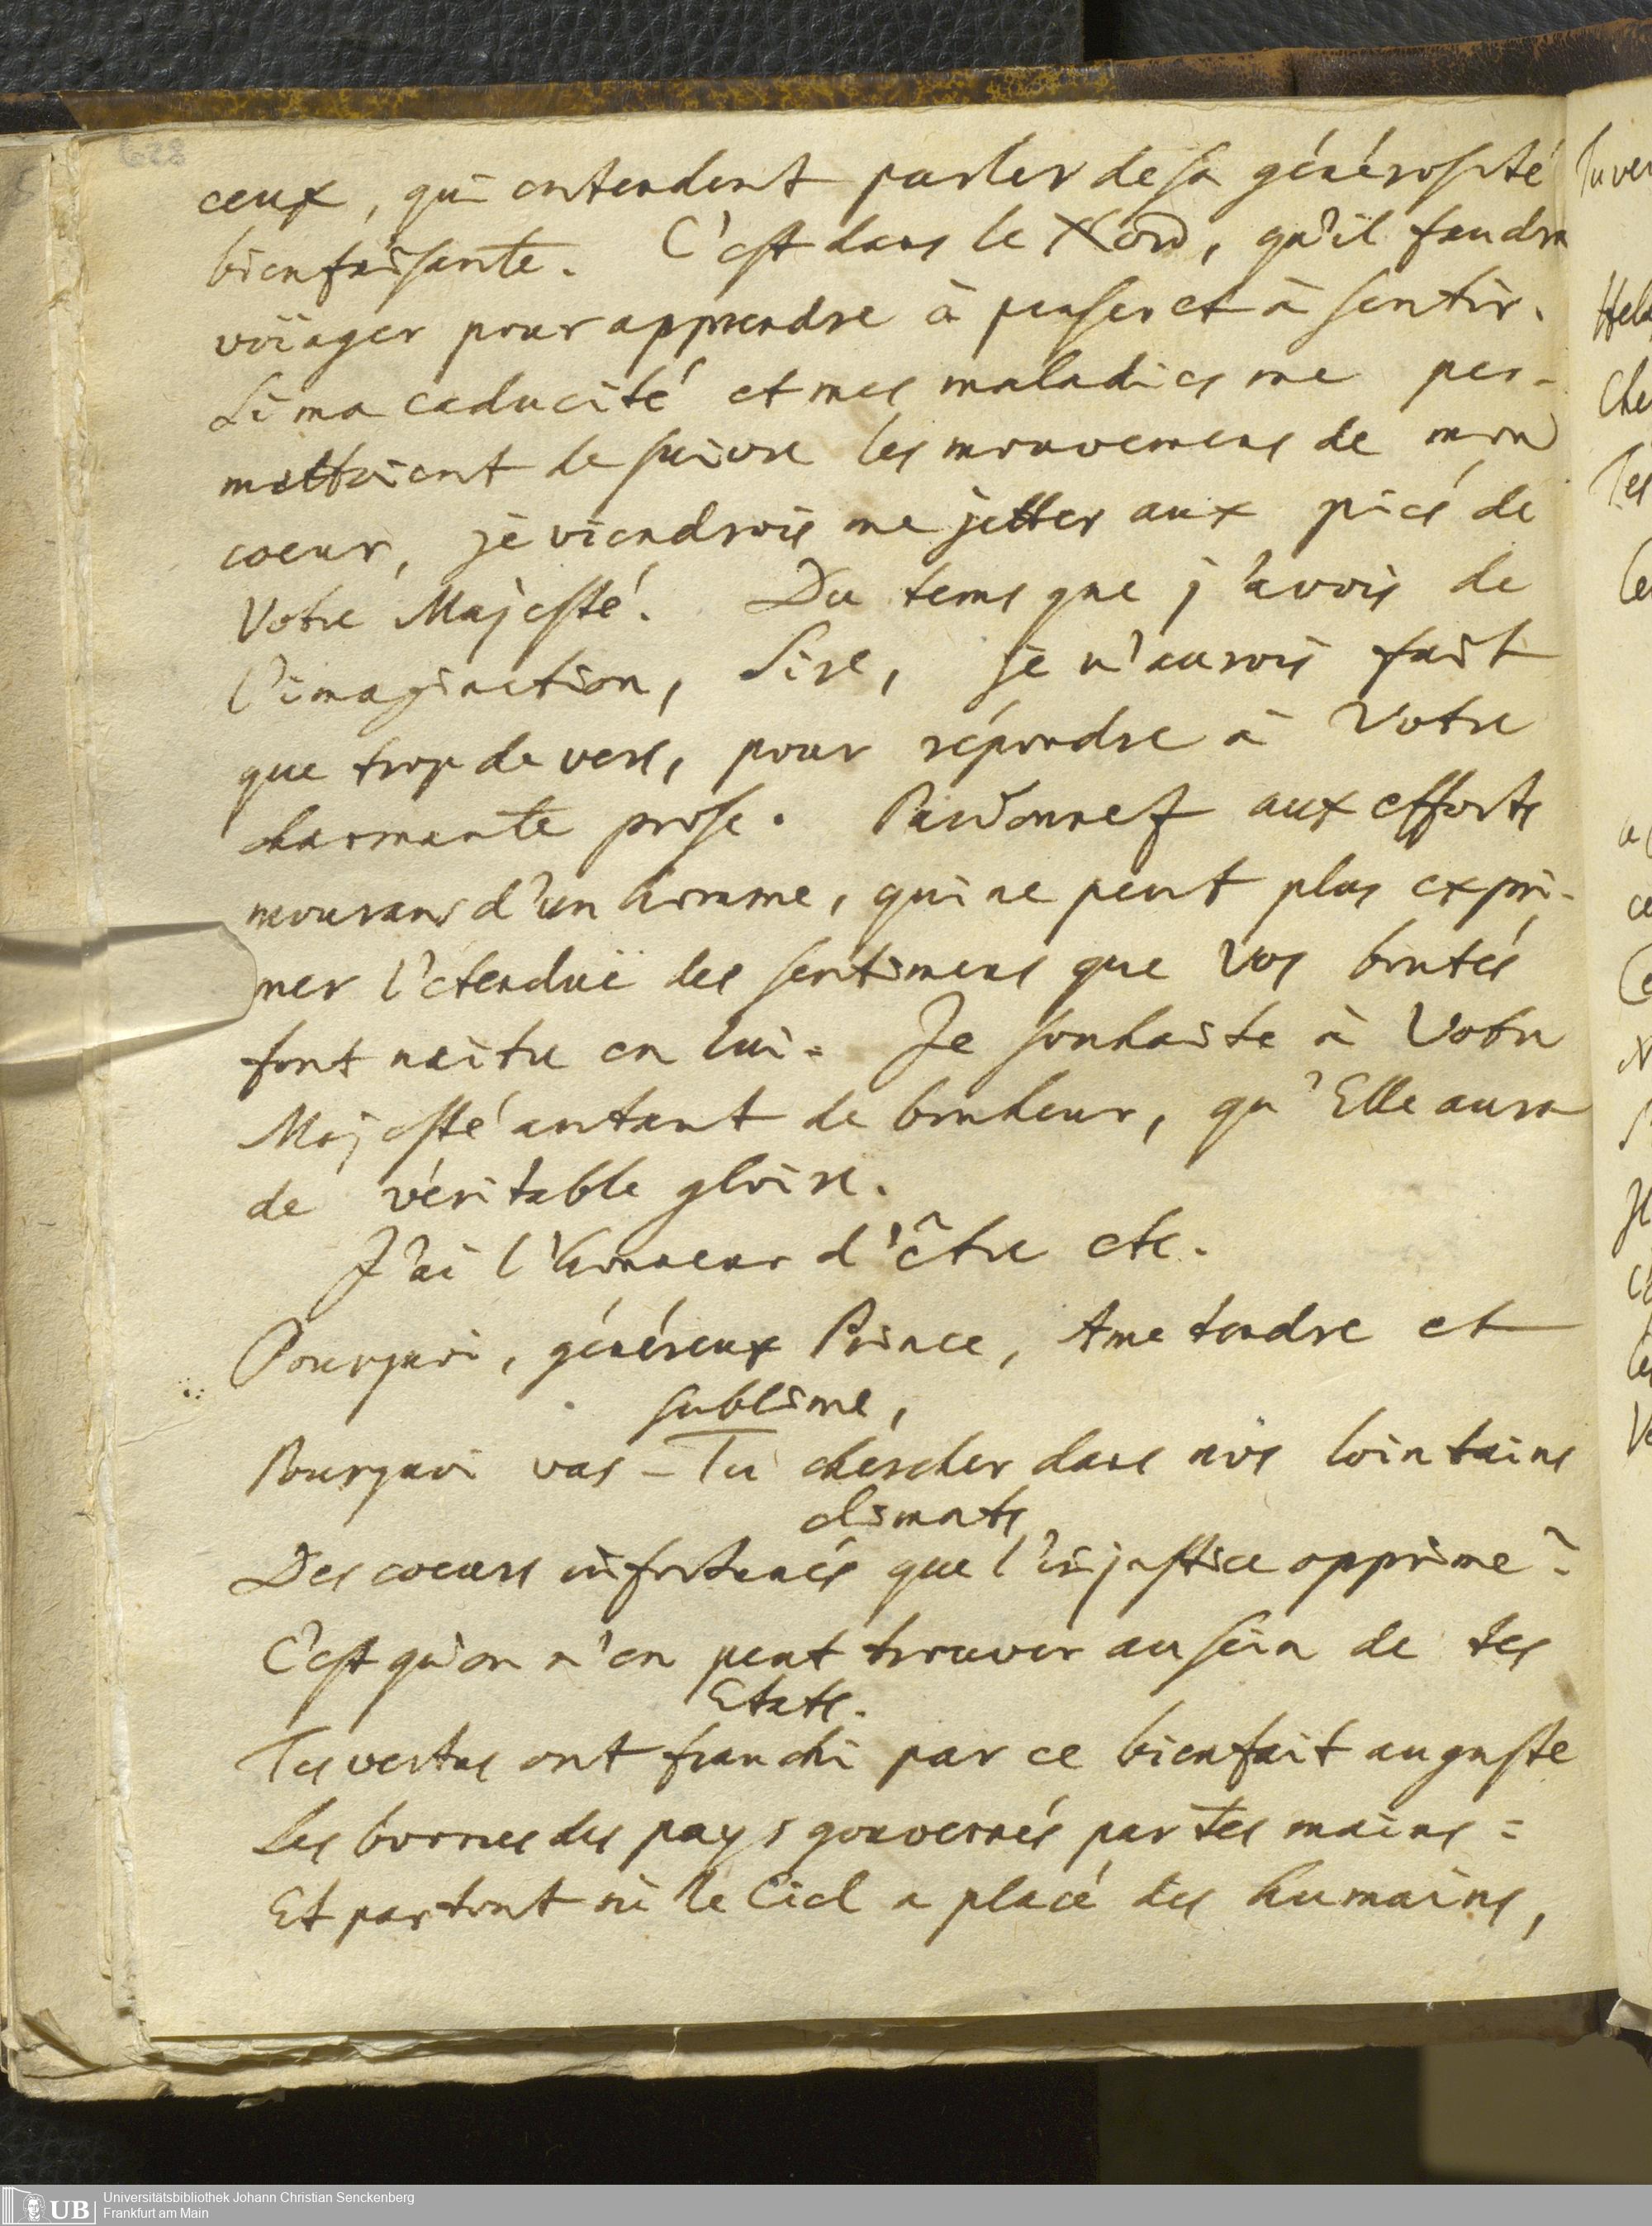 628
ceux, qui entendent parler de sa générosité
bienfaisante. C'est dans le Nord, qu'il faudra
voïager pour apprendre à penser et à sentir.
Si ma caducité et mes maladies me per-
mettoient de suivre les mouvemens de mon
coeur, je viendrois me jetter aux piés de
Votre Majesté. Du tems que j'avois de
l'imagination, Sire, je n'aurois fait
que trop de vers, pour répondre à Votre
charmante prose. Pardonnez aux efforts
mourans d'un homme, qui ne peut plus expri-
mer l'étenduë des sentimens que Vos bontés
font naitre en lui. Je souhaite à Votre
Majesté autant de bonheur, qu'Elle aura
de véritable gloire.
J'ai l'honneur d'être etc.
Pourquoi, généreux Prince, Ame tendre et
sublime,
Pourquoi vas-Tu chercher dans nos lointains
climats
Des coeurs infortunés que l'injustice opprime?
C'est qu'on n'en peut trouver au sein de tes
Etats.
Tes vertus ont franchi par ce bienfait auguste
Les bornes des pays gouvernés par Tes mains:
Et partout où le Ciel a placé des humains,
UB Universitätsbibliothek Johann Christian Senckenberg
Frankfurt am Main